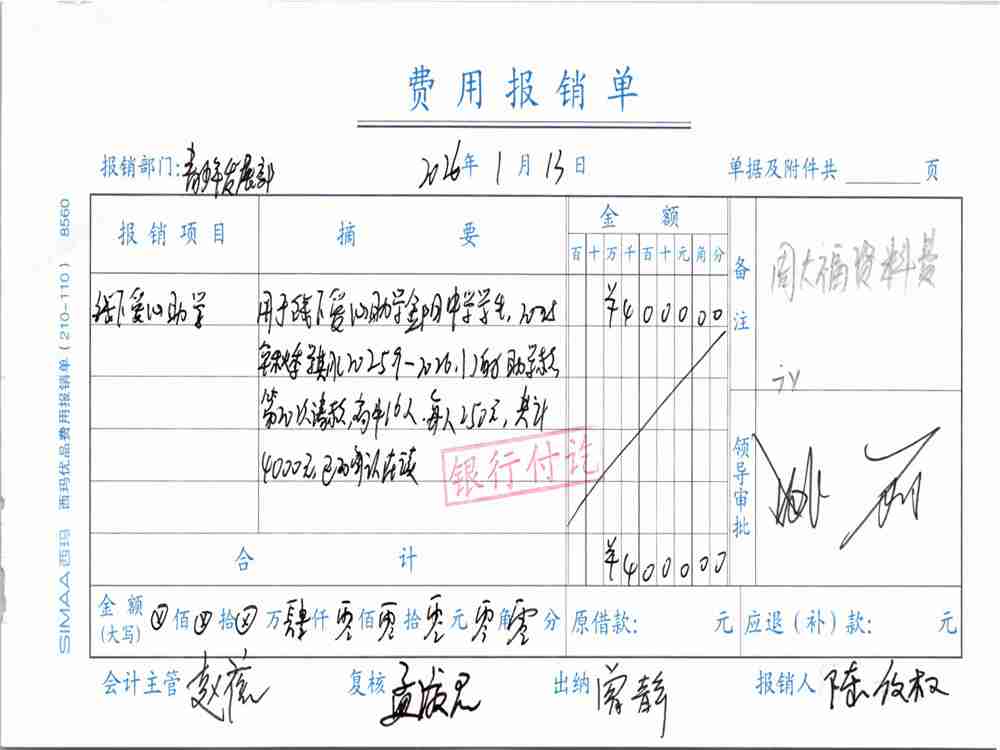 费用报销单
报销部门:青少年发展部 2026年1月13日 单据及附件共 页
报销项目 摘要 金额 备注
百十万千百十元角分
线下爱心助学 用于线下爱心助学金 中学学生,2025 ¥400000
年秋季学期(2025.9-2026.1)的助学款
第 次请款,高中16人.每人250元,共计
4000元.已 确认在读
银行付讫
周大福资料费
领导审批
合计 ¥400000
金额(大写) 佰 拾 万肆仟零佰零拾零元零角零分 原借款: 元 应退(补)款: 元
会计主管 赵 复核 孟 出纳 曾静 报销人 陈 权
SIMAA西玛 西玛优品费用报销单(210-110) 8560